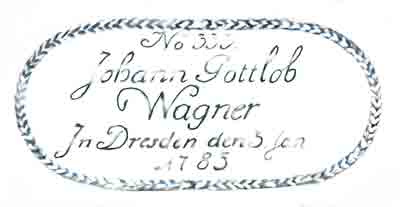 No 333.
Johann Gottlob
Wagner
In Dresden den 3. Jan
1783